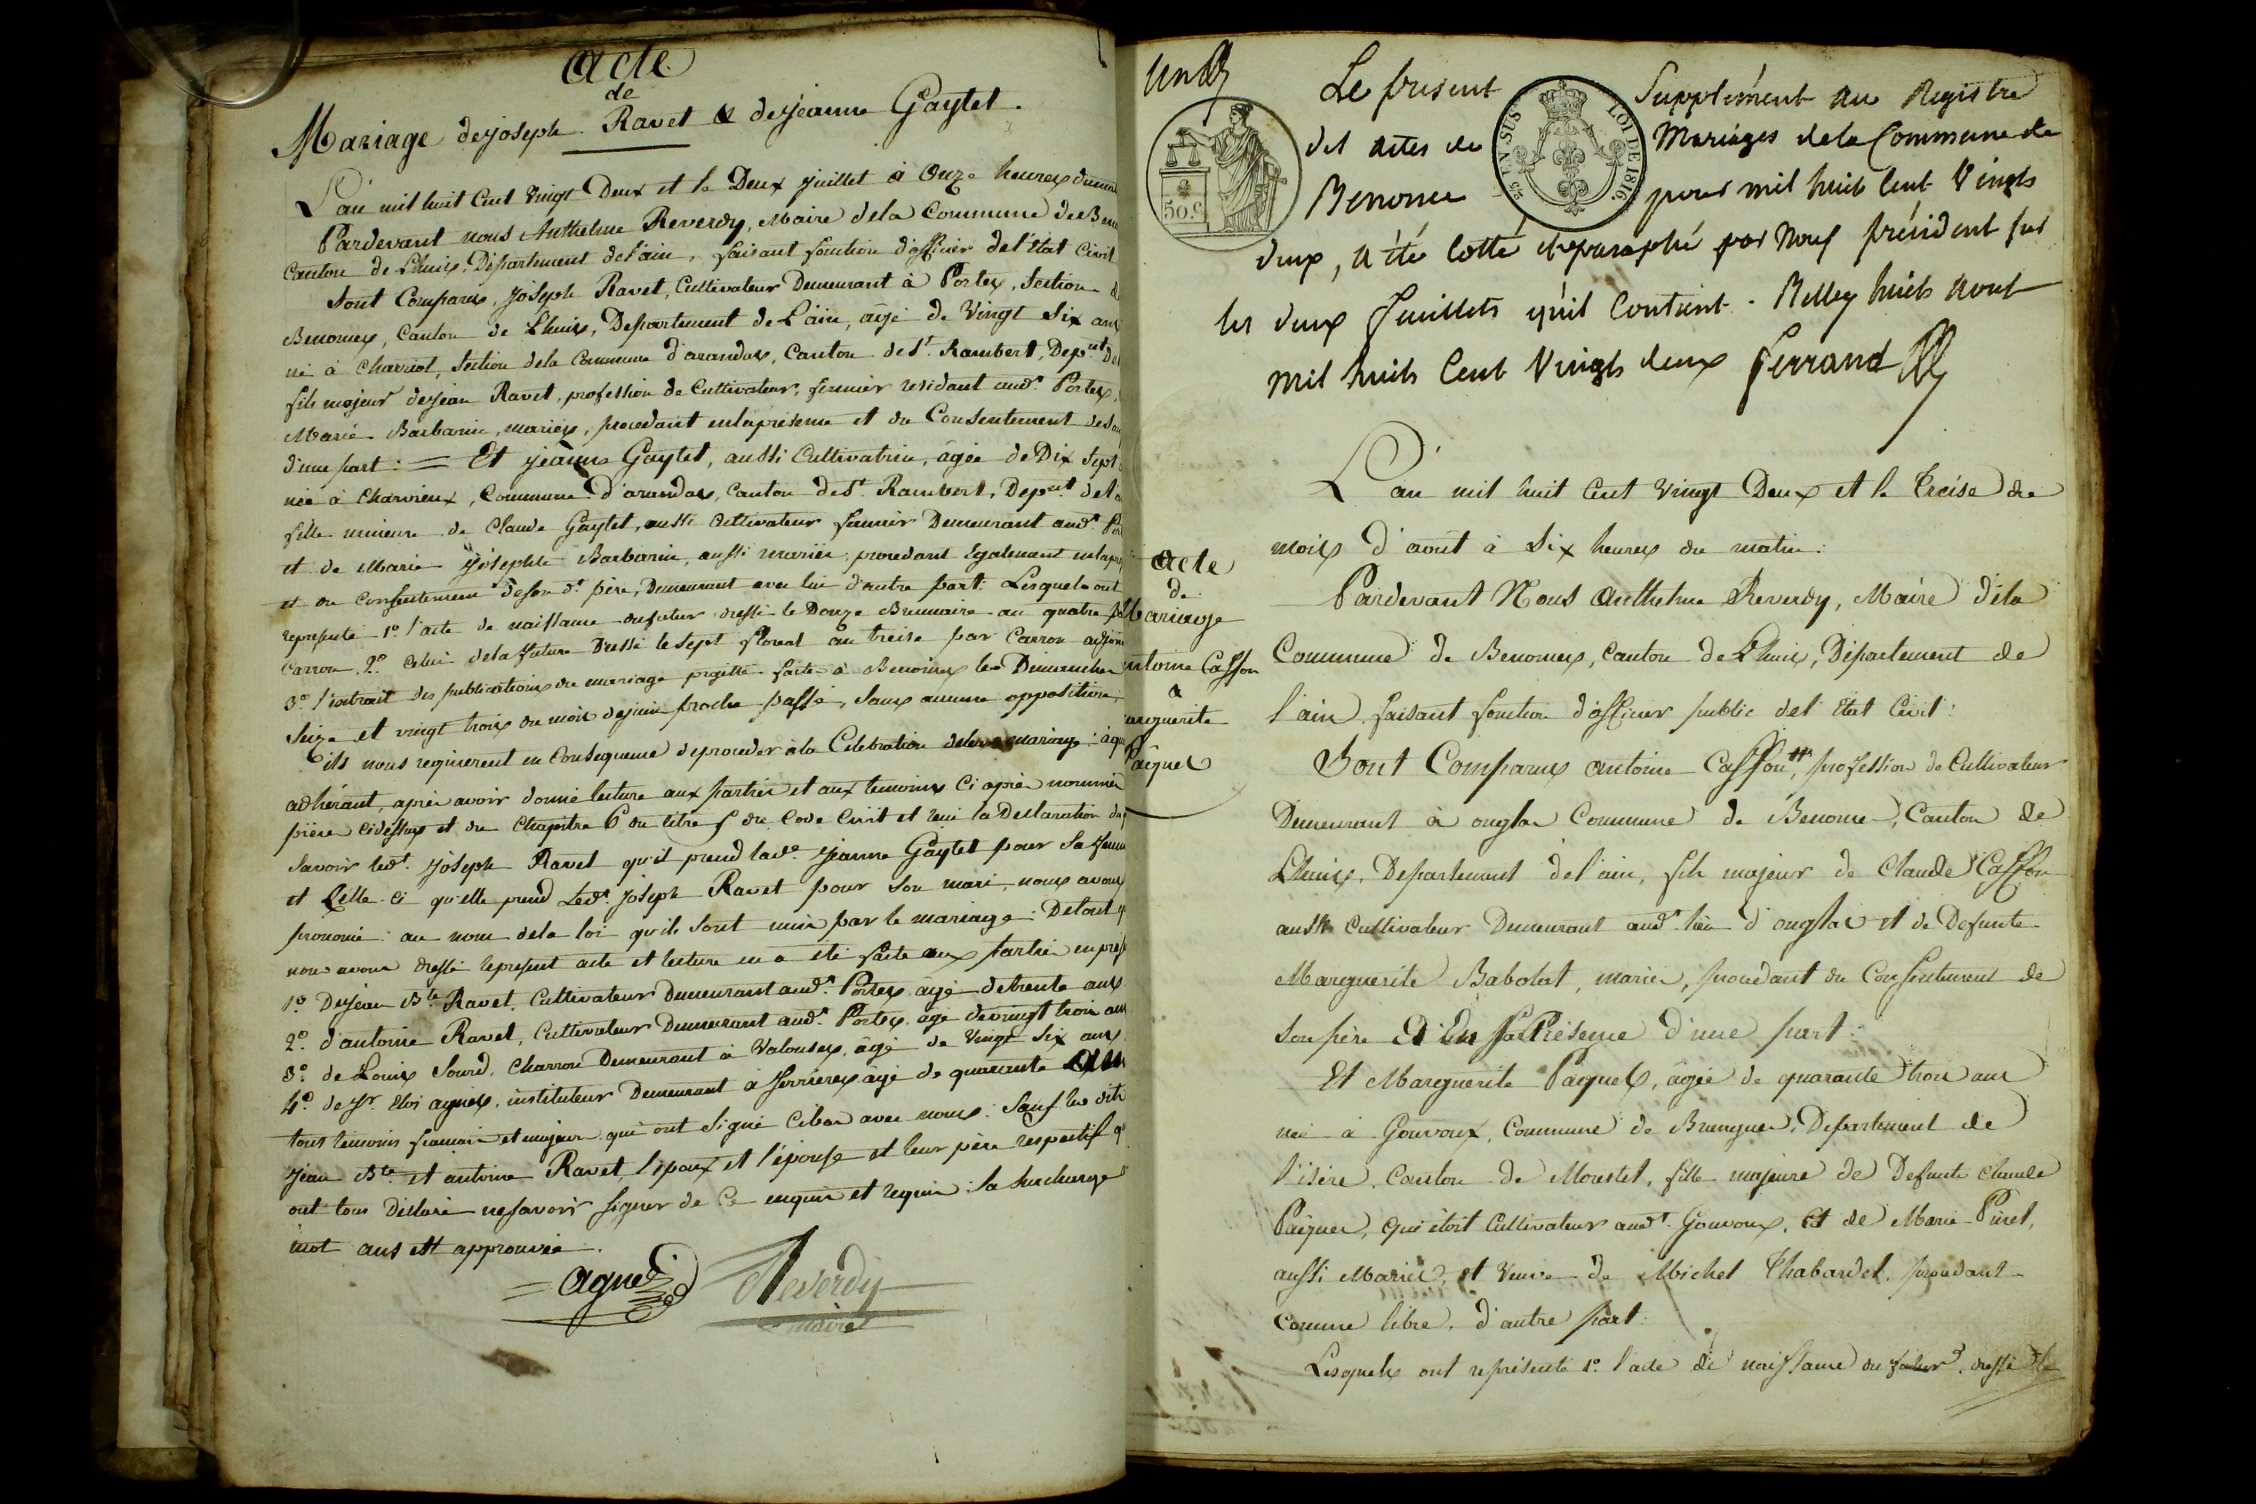 Acte
de
Mariage de Joseph Ravet & de Jeanne Gaytet.
L'an mil huit Cent Vingt Deux et le Deux juillet à Onze heures du
Pardevant nous Anthelme Reverdy, Maire dela Commune de Ben
Canton de Lhuis, Département del'ain, faisant fonction d'officier del'Etat Civil
Sont Comparus, Joseph Ravet, Cultivateur Demeurant à Portes, Section
Benonces, Canton de Lhuis, Département de L'ain, âgé de Vingt Six ans
né à Charviol, Section dela Commune d'arandas, Canton de St. Rambert, Depmt. Del
fils majeur de jean Ravet, profession de Cultivateur, fermier residant aud. Portes,
Marie Barbarin, mariés, procedant enla présence et du Consentement deson
d'une part : = Et Jeanne Gaytet, aussi Cultivatrice, âgée de Dix Sept
née à Charvieux, Commune d'arandas, Canton de St. Rambert, Depmt. del
fille mineure de Claude Gaytet, aussi Cultivateur fermier Demeurant aud. Por
et de Marie Josephte Barbarin, aussi mariés ; procedant Egalement enla pre
et du Consentement deson d. père, Demeurant avec lui d'autre part. Lesquels ont
représenté 1º. l'acte de naissance du futur dressé le Douze Brumaire an quatre p
Carron. 2º. Celui dela future Dressé le Sept floreal an treise par Carron adjoin
3º. l'extrait des publications du mariage projetté faite à Benonces les Dimanches
Seize et vingt trois du mois dejuin proche passé, Sans aucune opposition,
ils nous requierent en Consequence deproceder à la Celebration deleur mariage : aqu
adhérant, après avoir donné lecture aux parties et aux temoins Ci après nommés
pièces cidessus et du Chapitre 6 du titre 5 du Code Civil et reçu la Déclaration des
Savoir led. Joseph Ravet qu'il prend lad. Jeanne Gaytet pour Sa femme
et Celle-ci qu'elle prend Led. Joseph Ravet pour Son mari, nous avons
prononcé : au nom dela loi qu'ils Sont unis par le mariage : Detout q
nous avons dressé lepresent acte et lecture en a été faite aux parties en pres
1º. De Jean Bte. Ravet, Cultivateur Demeurant aud. Portes âgé detrente ans
2º. d'antoine Ravet, Cultivateur Demeurant aud. Portes âgé devingt trois ans
3º. de Louis Sourd, Charron Demeurant à Valouses, âgé de Vingt Six ans
4º. de Sr. Eloi agnès, instituteur Demeurant à ferrieres âgé de quarante ans
tous temoins francais et majeurs qui ont Signé Cibas avec nous : Sauf les dits
Jean Bte. et antoine Ravet, l'époux et l'épouse et leur père respectif q
ont tous Déclaré nesavoir Signer de Ce enquis et requis : la Surcharge
mot ans est approuvée.
Agnès Reverdy
maire
un
Le présent Supplément au Registre
des actes de Mariages de la Commune de
Benonce pour mil huit Cent Vingts
deux, a été Cotté et paraphé par Nous président sur
les deux feuillets qu'il Contient. Belley huits aout
mil huits Cent Vingts deux Ferrand
50.C
EN SUS
LOI DE 1816
L'an mil huit Cent Vingt Deux et le Treise du
mois d'août à Six heures du matin :
Pardevant Nous Anthelme Reverdy, Maire dela
Commune de Benonces, Canton de Lhuis, Département de
l'ain, faisant fonction d'officier public del'Etat Civil :
Acte
de
Mariage
antoine Caffon
a
arguerite
Paiquel
Sont Comparus antoine Caffon, profession de Cultivateur
Demeurant à onglas Commune de Benonce, Canton de
Lhuis, Departement del'ain, fils majeur de Claude Caffon
aussi Cultivateur Demeurant aud. lieu d'onglas et de Defunte
Marguerite Babolat, mariés, procedant du Consentement de
Son père Et En Sa Présence d'une part :
Et Marguerite Paiquel, âgée de quarante trois ans
née à Gouvoux, Commune de Brangues, Département de
l'isère, Canton de Morestel, fille majeure de Defunt Claude
Paiquel, qui étoit Cultivateur aud. Gouvoux, Et de Marie Puret,
aussi Mariés, et Veuve de Michel Thabardel, procedant
Comme libre, d'autre part :
Lesquels ont représenté 1º. l'acte de naissance du futur, dressé le